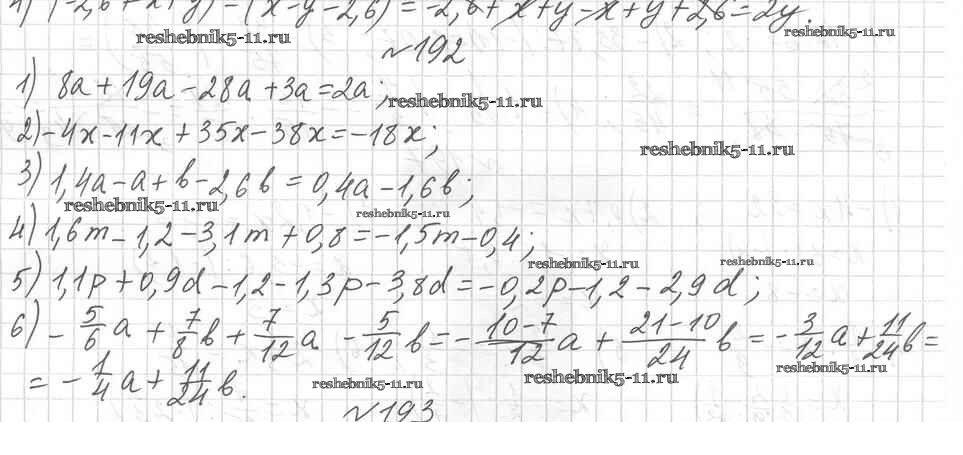 4) (-2,6+x+y)-(x-y-2,6)=-2,6+x+y-x+y+2,6=2y.
reshebnik5-11.ru
reshebnik5-11.ru
№192
1) 8a+19a-28a+3a=2a;
reshebnik5-11.ru
2) -4x-11x+35x-38x=-18x;
reshebnik5-11.ru
3) 1,4a-a+b-2,6b=0,4a-1,6b;
reshebnik5-11.ru
reshebnik5-11.ru
4) 1,6m-1,2-3,1m+0,8=-1,5m-0,4;
reshebnik5-11.ru
reshebnik5-11.ru
5) 1,1p+0,9d-1,2-1,3p-3,8d=-0,2p-1,2-2,9d;
6) -5/6a+7/8b+7/12a-5/12b=-(10-7)/12a+(21-10)/24b=-3/12a+11/24b=
reshebnik5-11.ru
=-1/4a+11/24b.
reshebnik5-11.ru
reshebnik5-11.ru
№193